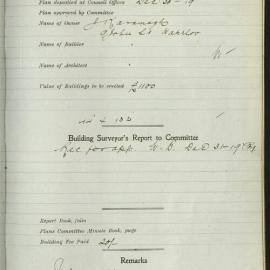 Plan deposited at Council Offices Dec 30-19
Plan approved by Committee
Name of Owner J Kavanagh
9 John St Waterloo
Name of Builder
Name of Architect
Value of Buildings to be erected £1100
Building Surveyor's Report to Committee
Rec for app. Dec 31-19
Report Book, folio
Plans Committee Minute Book, page
Building Fee Paid 20/-
Remarks